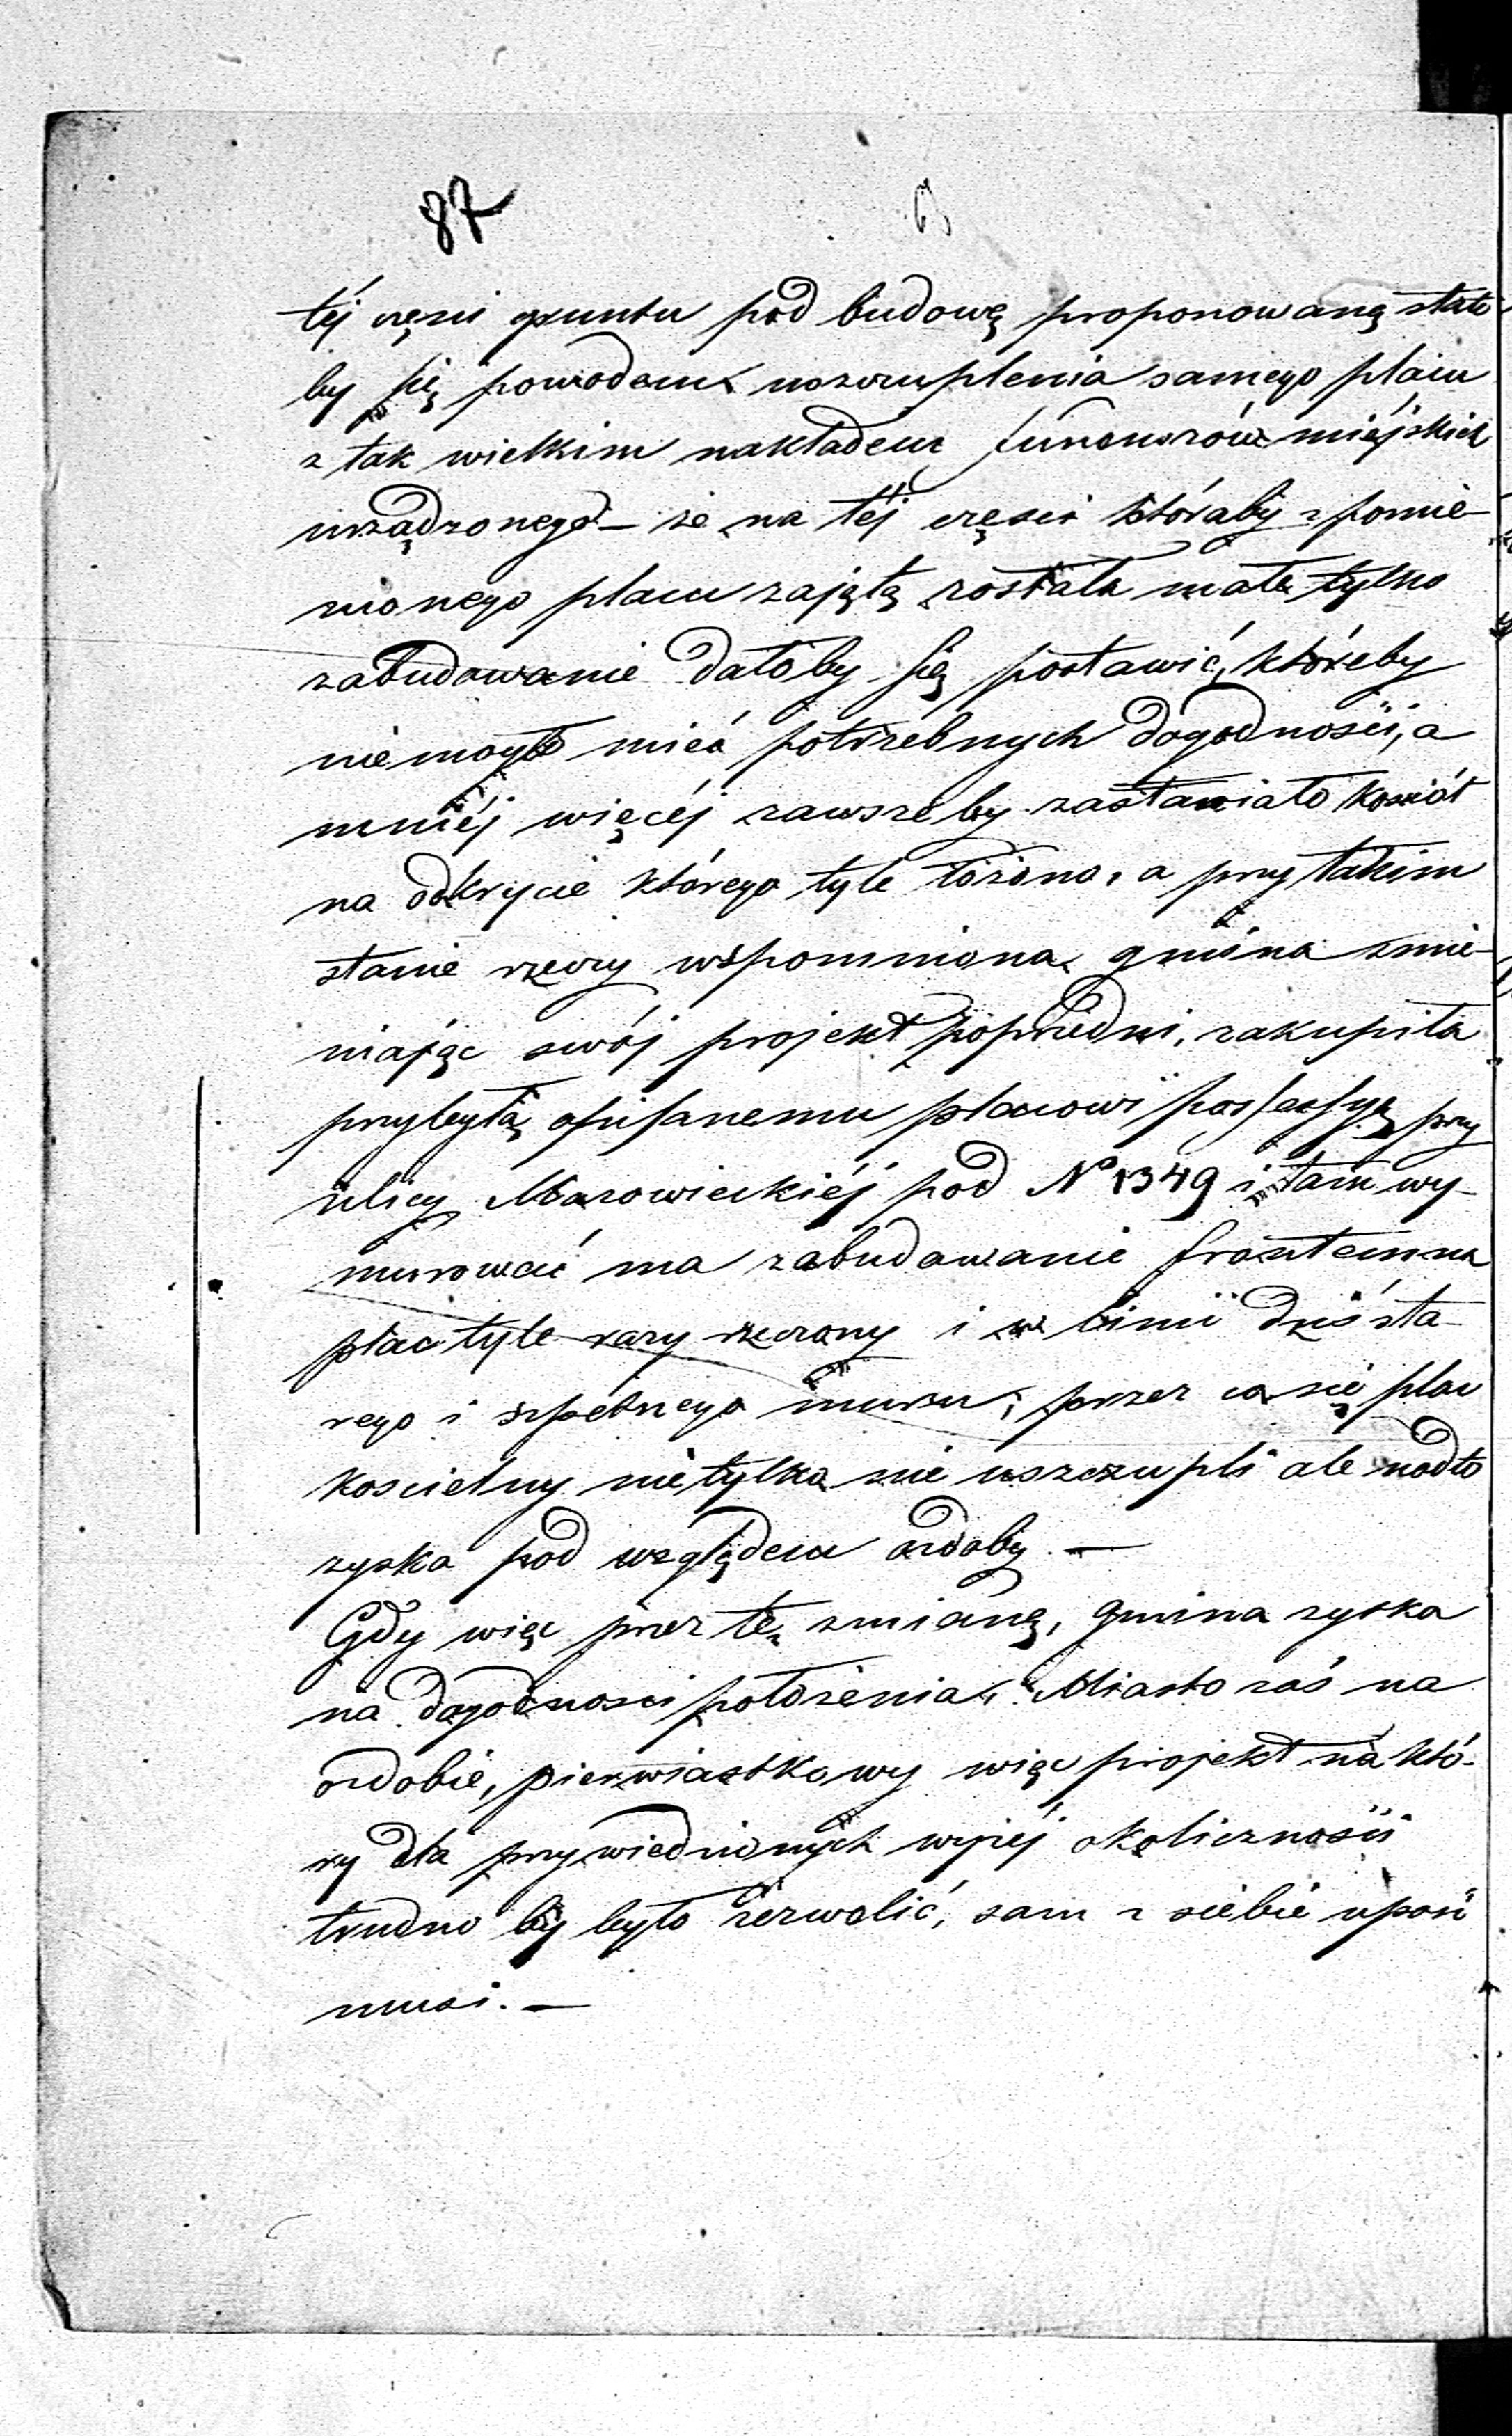 87
téj częsci gruntu pod budowę proponowaną stało
by się powodem uszczuplenia samego placu
z tak wielkim nakładem funduszów miéjskich
urządzonego – że na téj częsci któraby z pomie-
nionego placu zajętą została małe tylko
zabudowanie dałoby się postawić, któreby
niemogło mieć potrzebnych dogodności, a
mniéj więcéj zawszeby zastawiało kosciół
na odkrycie którego tyle łożono, a przy takim
stanie rzeczy wspomniona gmina zmie-
niając swój projekt poprzedni, zakupiła
przyległą opisanemu placowi possessyą przy
ulicy Mazowieckiéj pod No 1349 i tam wy-
murować ma zabudowanie frontem na
plac tyle razy rzeczony i w linii dziś sta-
rego i szpetnego muru; przez co się plac
koscielny nietylko nie uszczupli ale nadto
zyska pod względem ozdoby. —
Gdy więc przez tę zmianę, gmina zyska
na dogodnosci położenia, Miasto zaś na
ozdobie, pierwiastkowy więc projekt na któ-
ry dla przywiedzionych wyżéj okoliczności
trudno by było zezwolić, sam z siebie upaść
musi. —